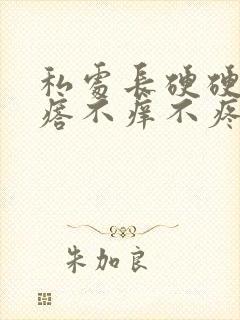 私處長硬硬
瘩不痒不疼
朱加良